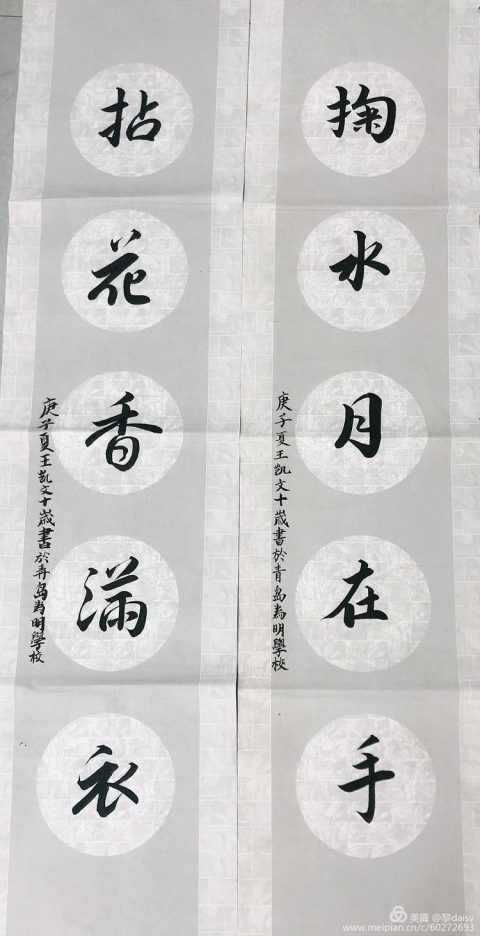 掬水月在手
庚子夏王凯文十歲書於青岛为明學校
拈花香满衣
庚子夏王凯文十歲書於青岛为明學校
美篇 @黎daisy
www.meipian.cn/c/60272693